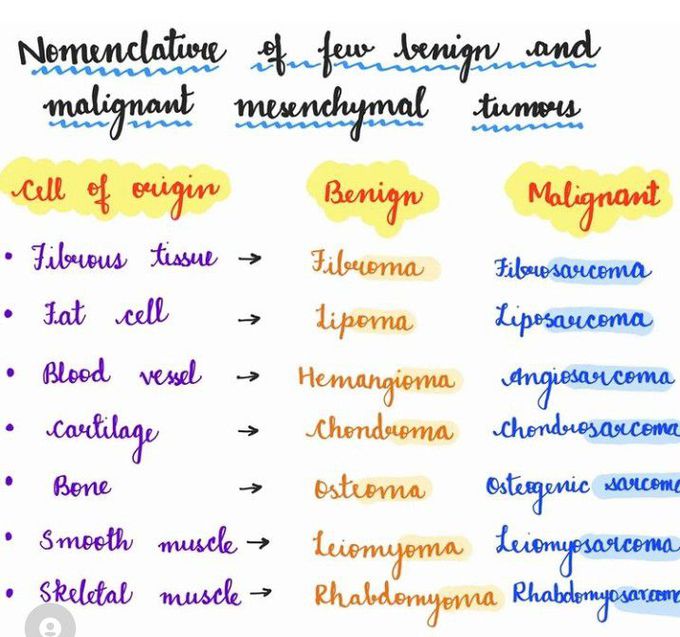 Nomenclature of few benign and
malignant mesenchymal tumors
Cell of origin Benign Malignant
• Fibrous tissue → Fibroma Fibrosarcoma
• Fat cell → Lipoma Liposarcoma
• Blood vessel → Hemangioma Angiosarcoma
• Cartilage → Chondroma Chondrosarcoma
• Bone → Osteoma Osteogenic sarcoma
• Smooth muscle → Leiomyoma Leiomyosarcoma
• Skeletal muscle → Rhabdomyoma Rhabdomyosarcoma